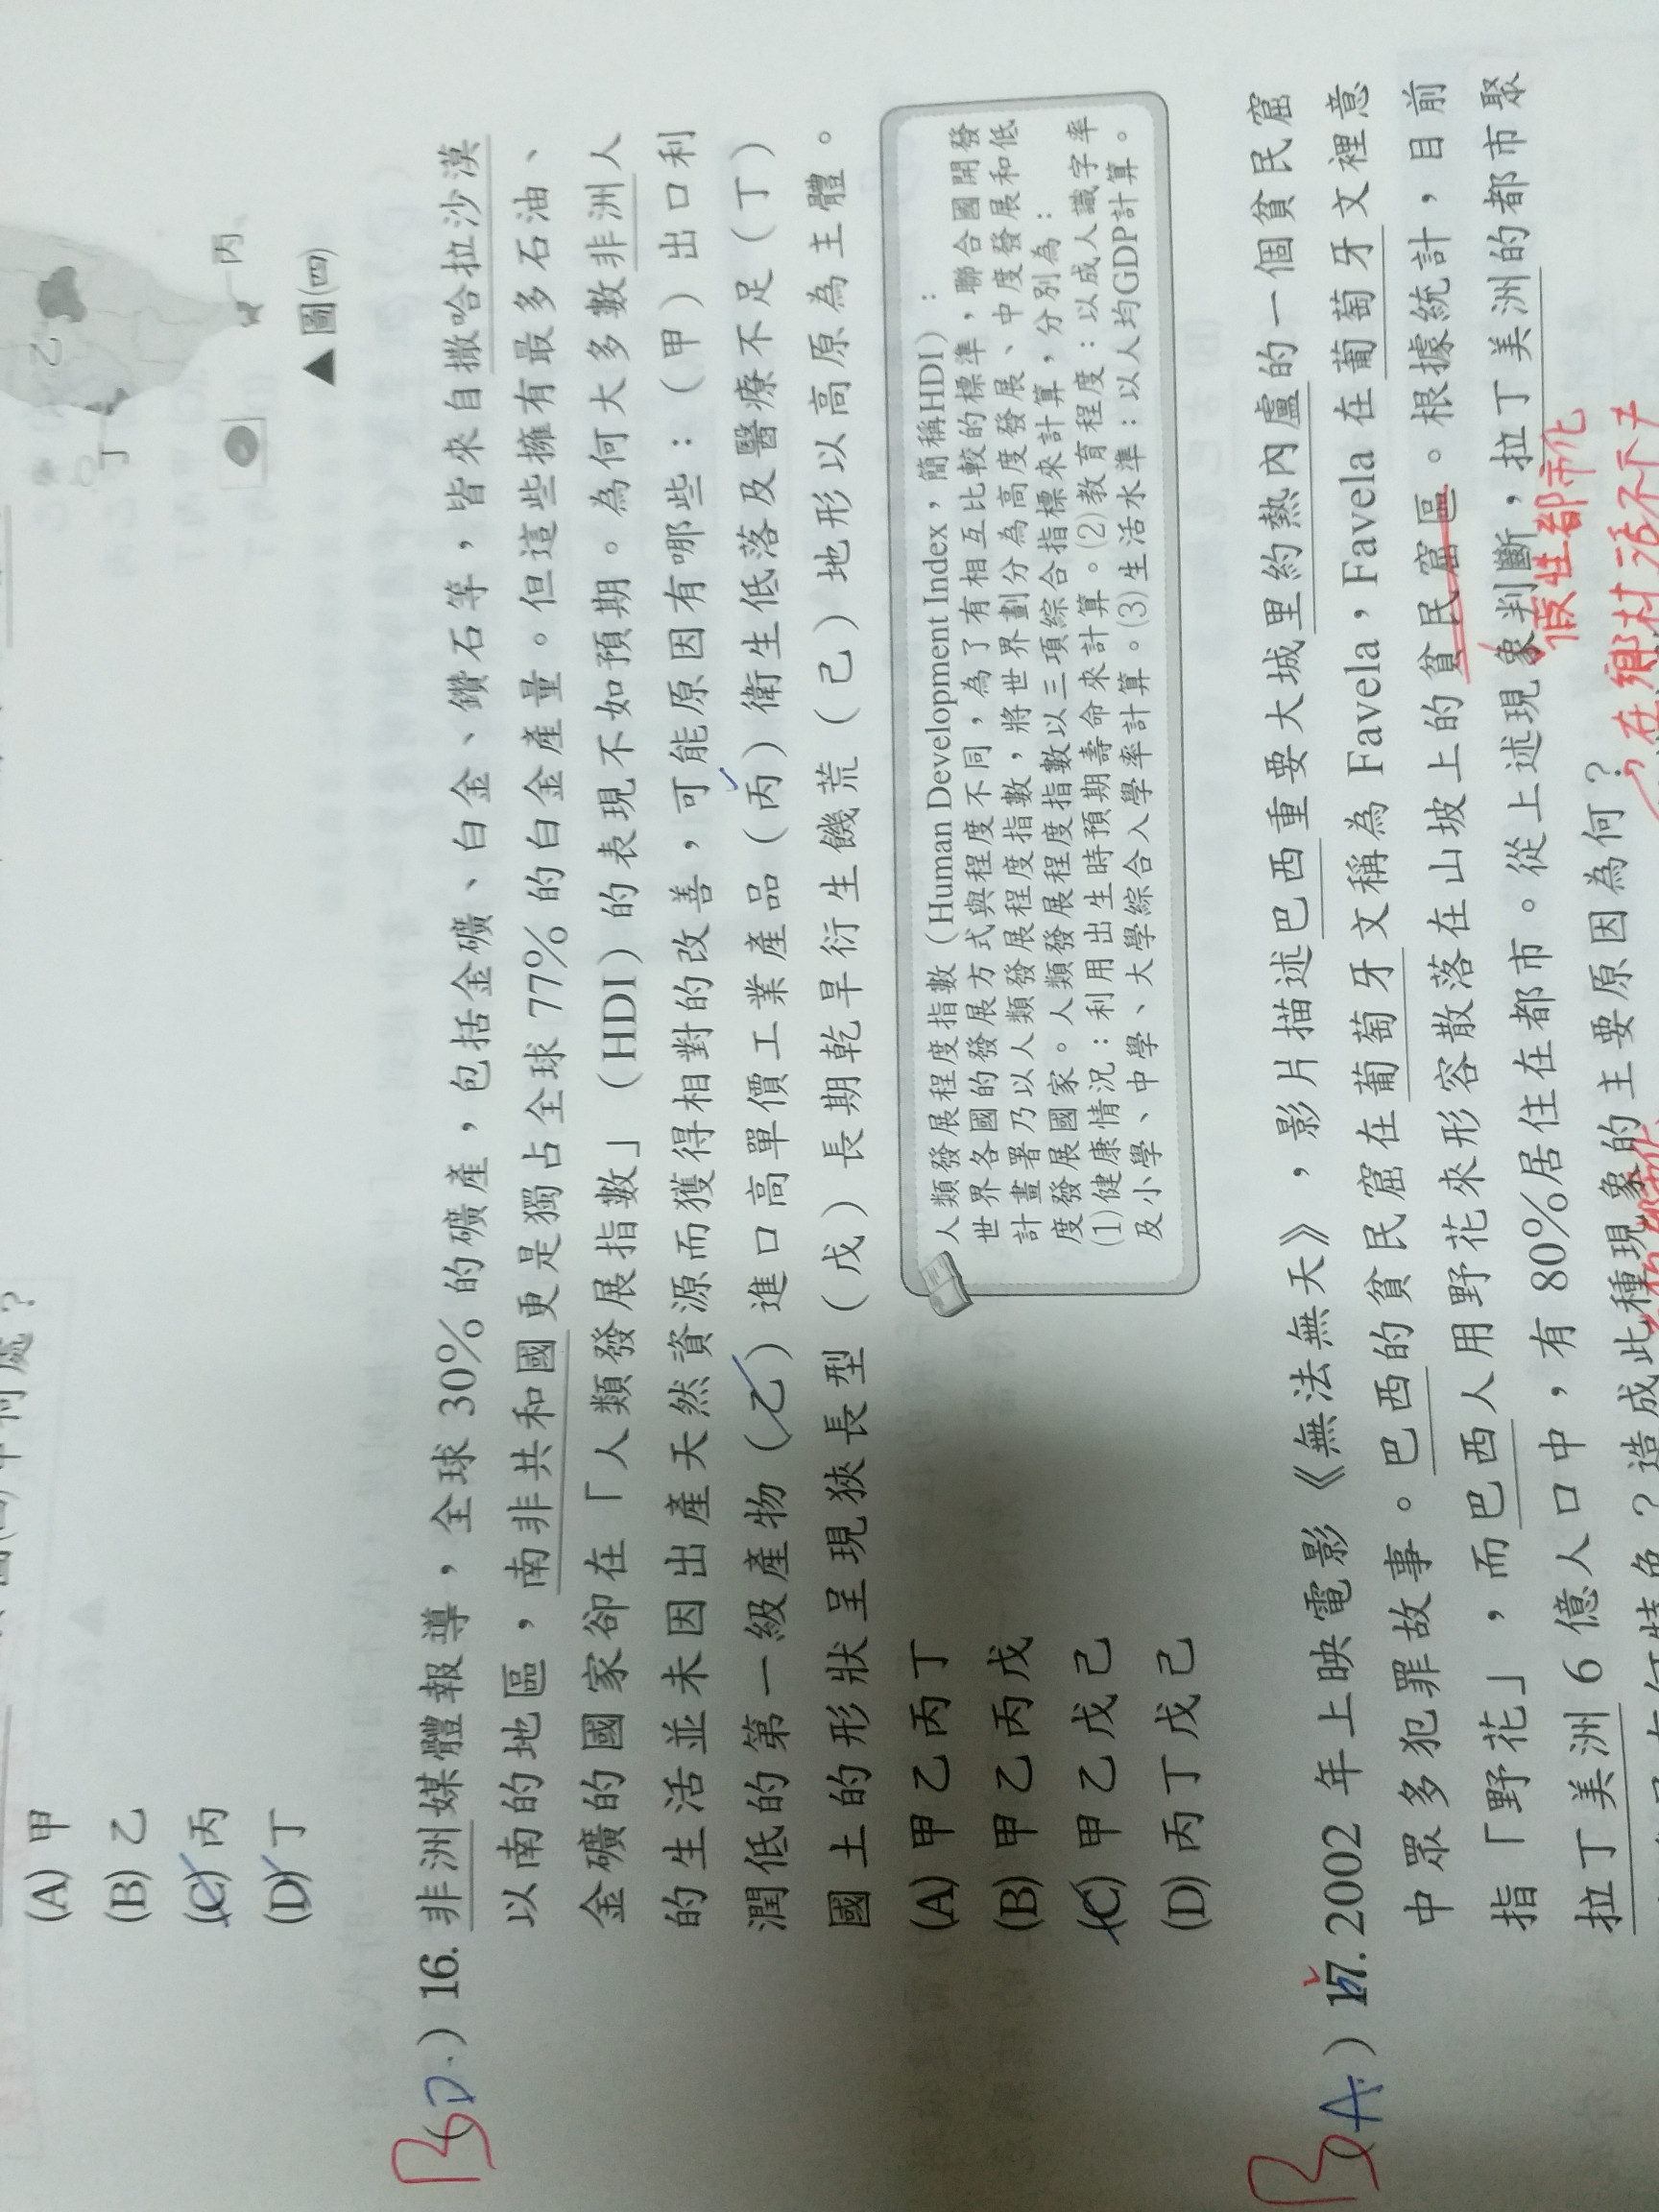 (A) 甲
(B) 乙
(C) 丙
(D) 丁
乙
丙
丁
▲圖(四)
B
( D. ) 16. 非洲媒體報導，全球 30% 的礦產，包括金礦、白金、鑽石等，皆來自撒哈拉沙漠
以南的地區，南非共和國更是獨占全球 77% 的白金產量。但這些擁有最多石油、
金礦的國家卻在「人類發展指數」（HDI）的表現不如預期。為何大多數非洲人
的生活並未因出產天然資源而獲得相對的改善，可能原因有哪些：（甲）出口利
潤低的第一級產物（乙）進口高單價工業產品（丙）衛生低落及醫療不足（丁）
國土的形狀呈現狹長型（戊）長期乾旱衍生饑荒（己）地形以高原為主體。
(A) 甲乙丙丁
(B) 甲乙丙戊
(C) 甲乙戊己
(D) 丙丁戊己
人類發展程度指數（Human Development Index，簡稱HDI）：
世界各國的發展方式與程度不同，為了有相互比較的標準，聯合國開發
計畫署乃以人類發展程度指數，將世界劃分為高度發展、中度發展和低
度發展國家。人類發展程度指數以三項綜合指標來計算，分別為：
(1)健康情況：利用出生時預期壽命來計算。(2)教育程度：以成人識字率
及小學、中學、大學綜合入學率計算。(3)生活水準：以人均GDP計算。
B
( A. ) 17. 2002 年上映電影《無法無天》，影片描述巴西重要大城里約熱內盧的一個貧民窟
中眾多犯罪故事。巴西的貧民窟在葡萄牙文稱為 Favela，Favela 在葡萄牙文裡意
指「野花」，而巴西人用野花來形容散落在山坡上的貧民窟區。根據統計，目前
拉丁美洲 6 億人口中，有 80%居住在都市。從上述現象判斷，拉丁美洲的都市聚
假性都市化
造成此種現象的主要原因為何？
在鄉村活不下去